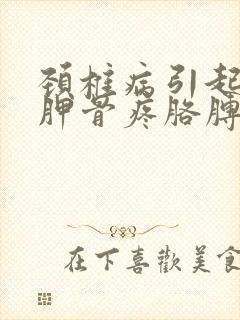 颈椎病引起
胛骨疼胳膊
在下喜歡美食